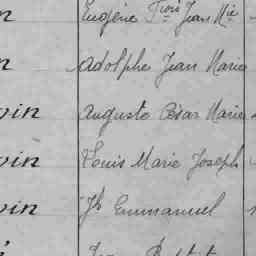 n Eugène Fçois Jean Mie
n Adolphe Jean Marie
vin Auguste César Marie
vin Louis Marie Joseph
vin Jh Emmanuel